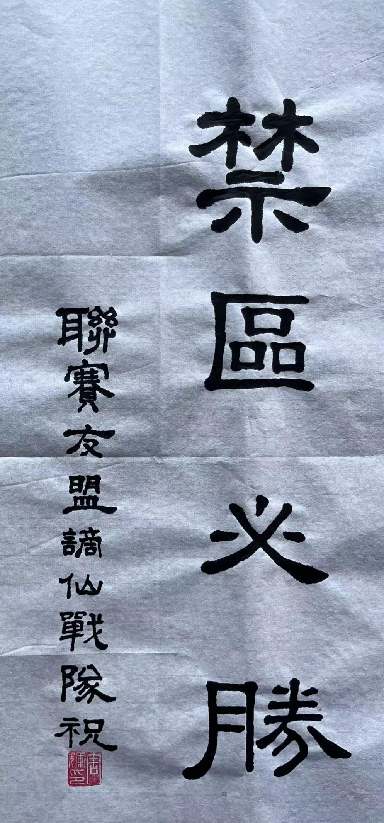 禁區必勝
聯賽友盟謫仙戰隊祝